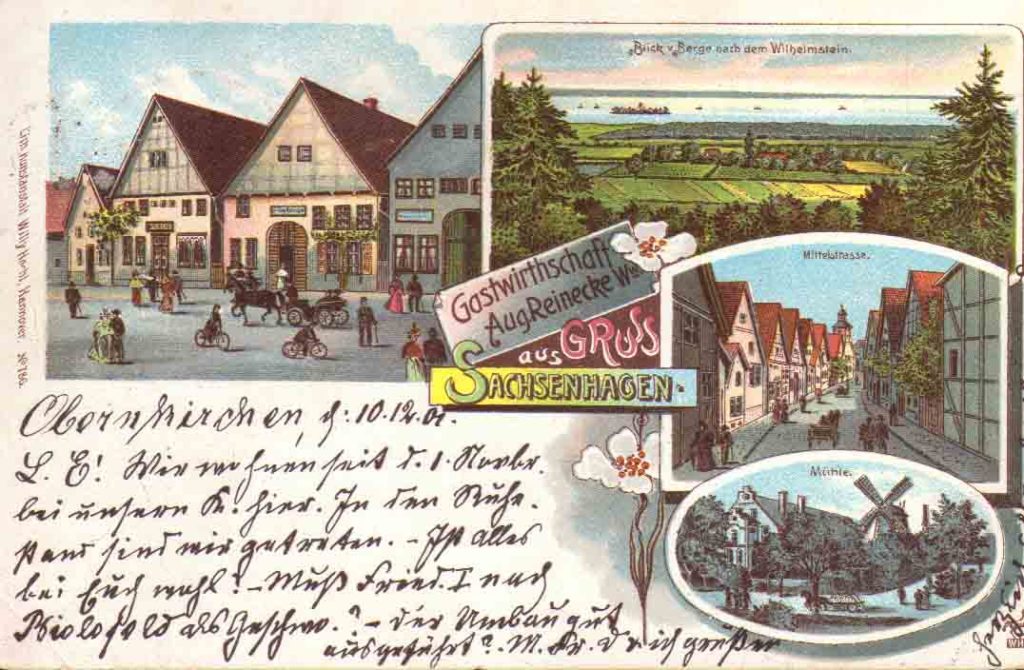 Blick v. Berge nach dem Wilhelmstein.
Gastwirthschaft
Aug Reinecke Wwe
GRUSS
aus
SACHSENHAGEN.
Mittelstrasse.
Mühle.
Lith. Kunstanstalt Willy Hecht, Hannover. No 786.
Obernkirchen, d. 10.12.01.
L. E! Wir wohnen seit d. 1. Novbr.
bei unsern K. hier. In den Ruhe-
stand sind wir getreten. - Ist alles
bei Euch wohl? - Muß Fried. I nach
Bielefeld als Geschwo.? - der Umbau gut
ausgeführt? M. Fr. d. ich grüßen